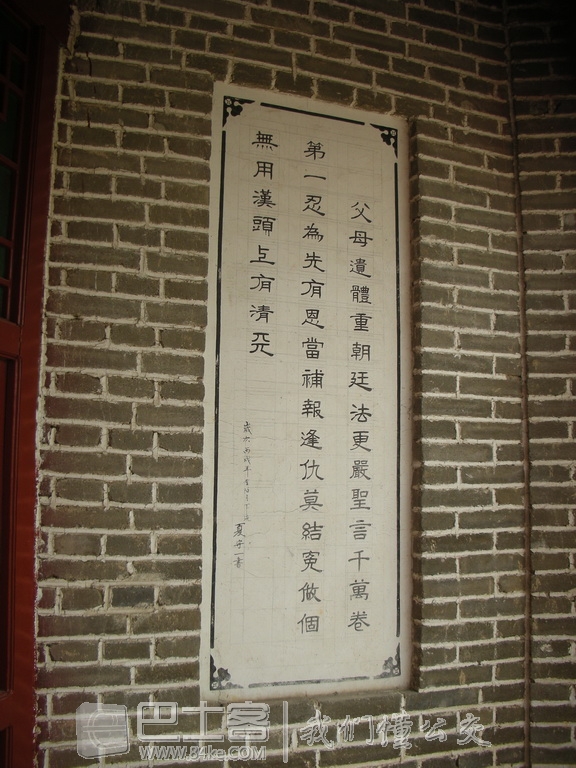 父母遺體重朝廷法更嚴聖言千萬卷
第一忍為先有恩當補報逢仇莫結冤做個
無用漢頭上有清天
歲次丙戌年
夏守一書
巴士客
www.84ke.com
我们懂公交